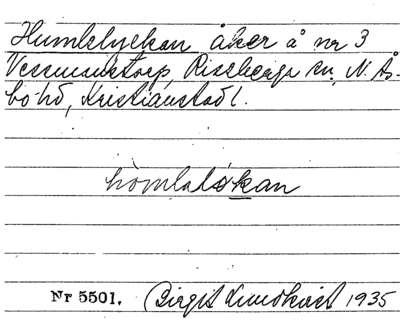 Humlelyckan åker å nr 3
Vessmanstorp, Riseberga sn, N. Ås-
bo hd, Kristianstad l.
hömlalökan
Nr 5501. Birgit Lundkvist 1935